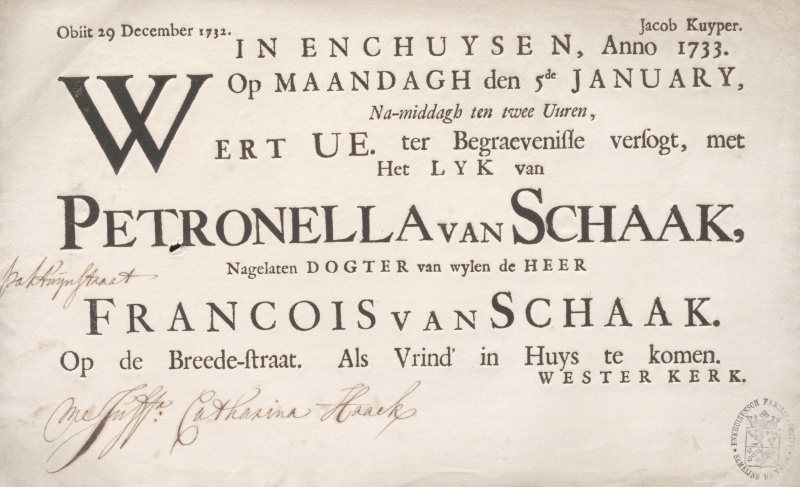 Obiit 29 December 1732.
Jacob Kuyper.
IN ENCHUYSEN, Anno 1733.
Op MAANDAGH den 5de JANUARY,
Na-middagh ten twee Uuren,
WERT UE. ter Begraeveniſſe verſogt, met
Het LYK van
PETRONELLA VAN SCHAAK,
Nagelaten DOGTER van wylen de HEER
FRANCOIS VAN SCHAAK.
Op de Breede-ſtraat. Als Vrind' in Huys te komen.
WESTER KERK.
Catharina Haack